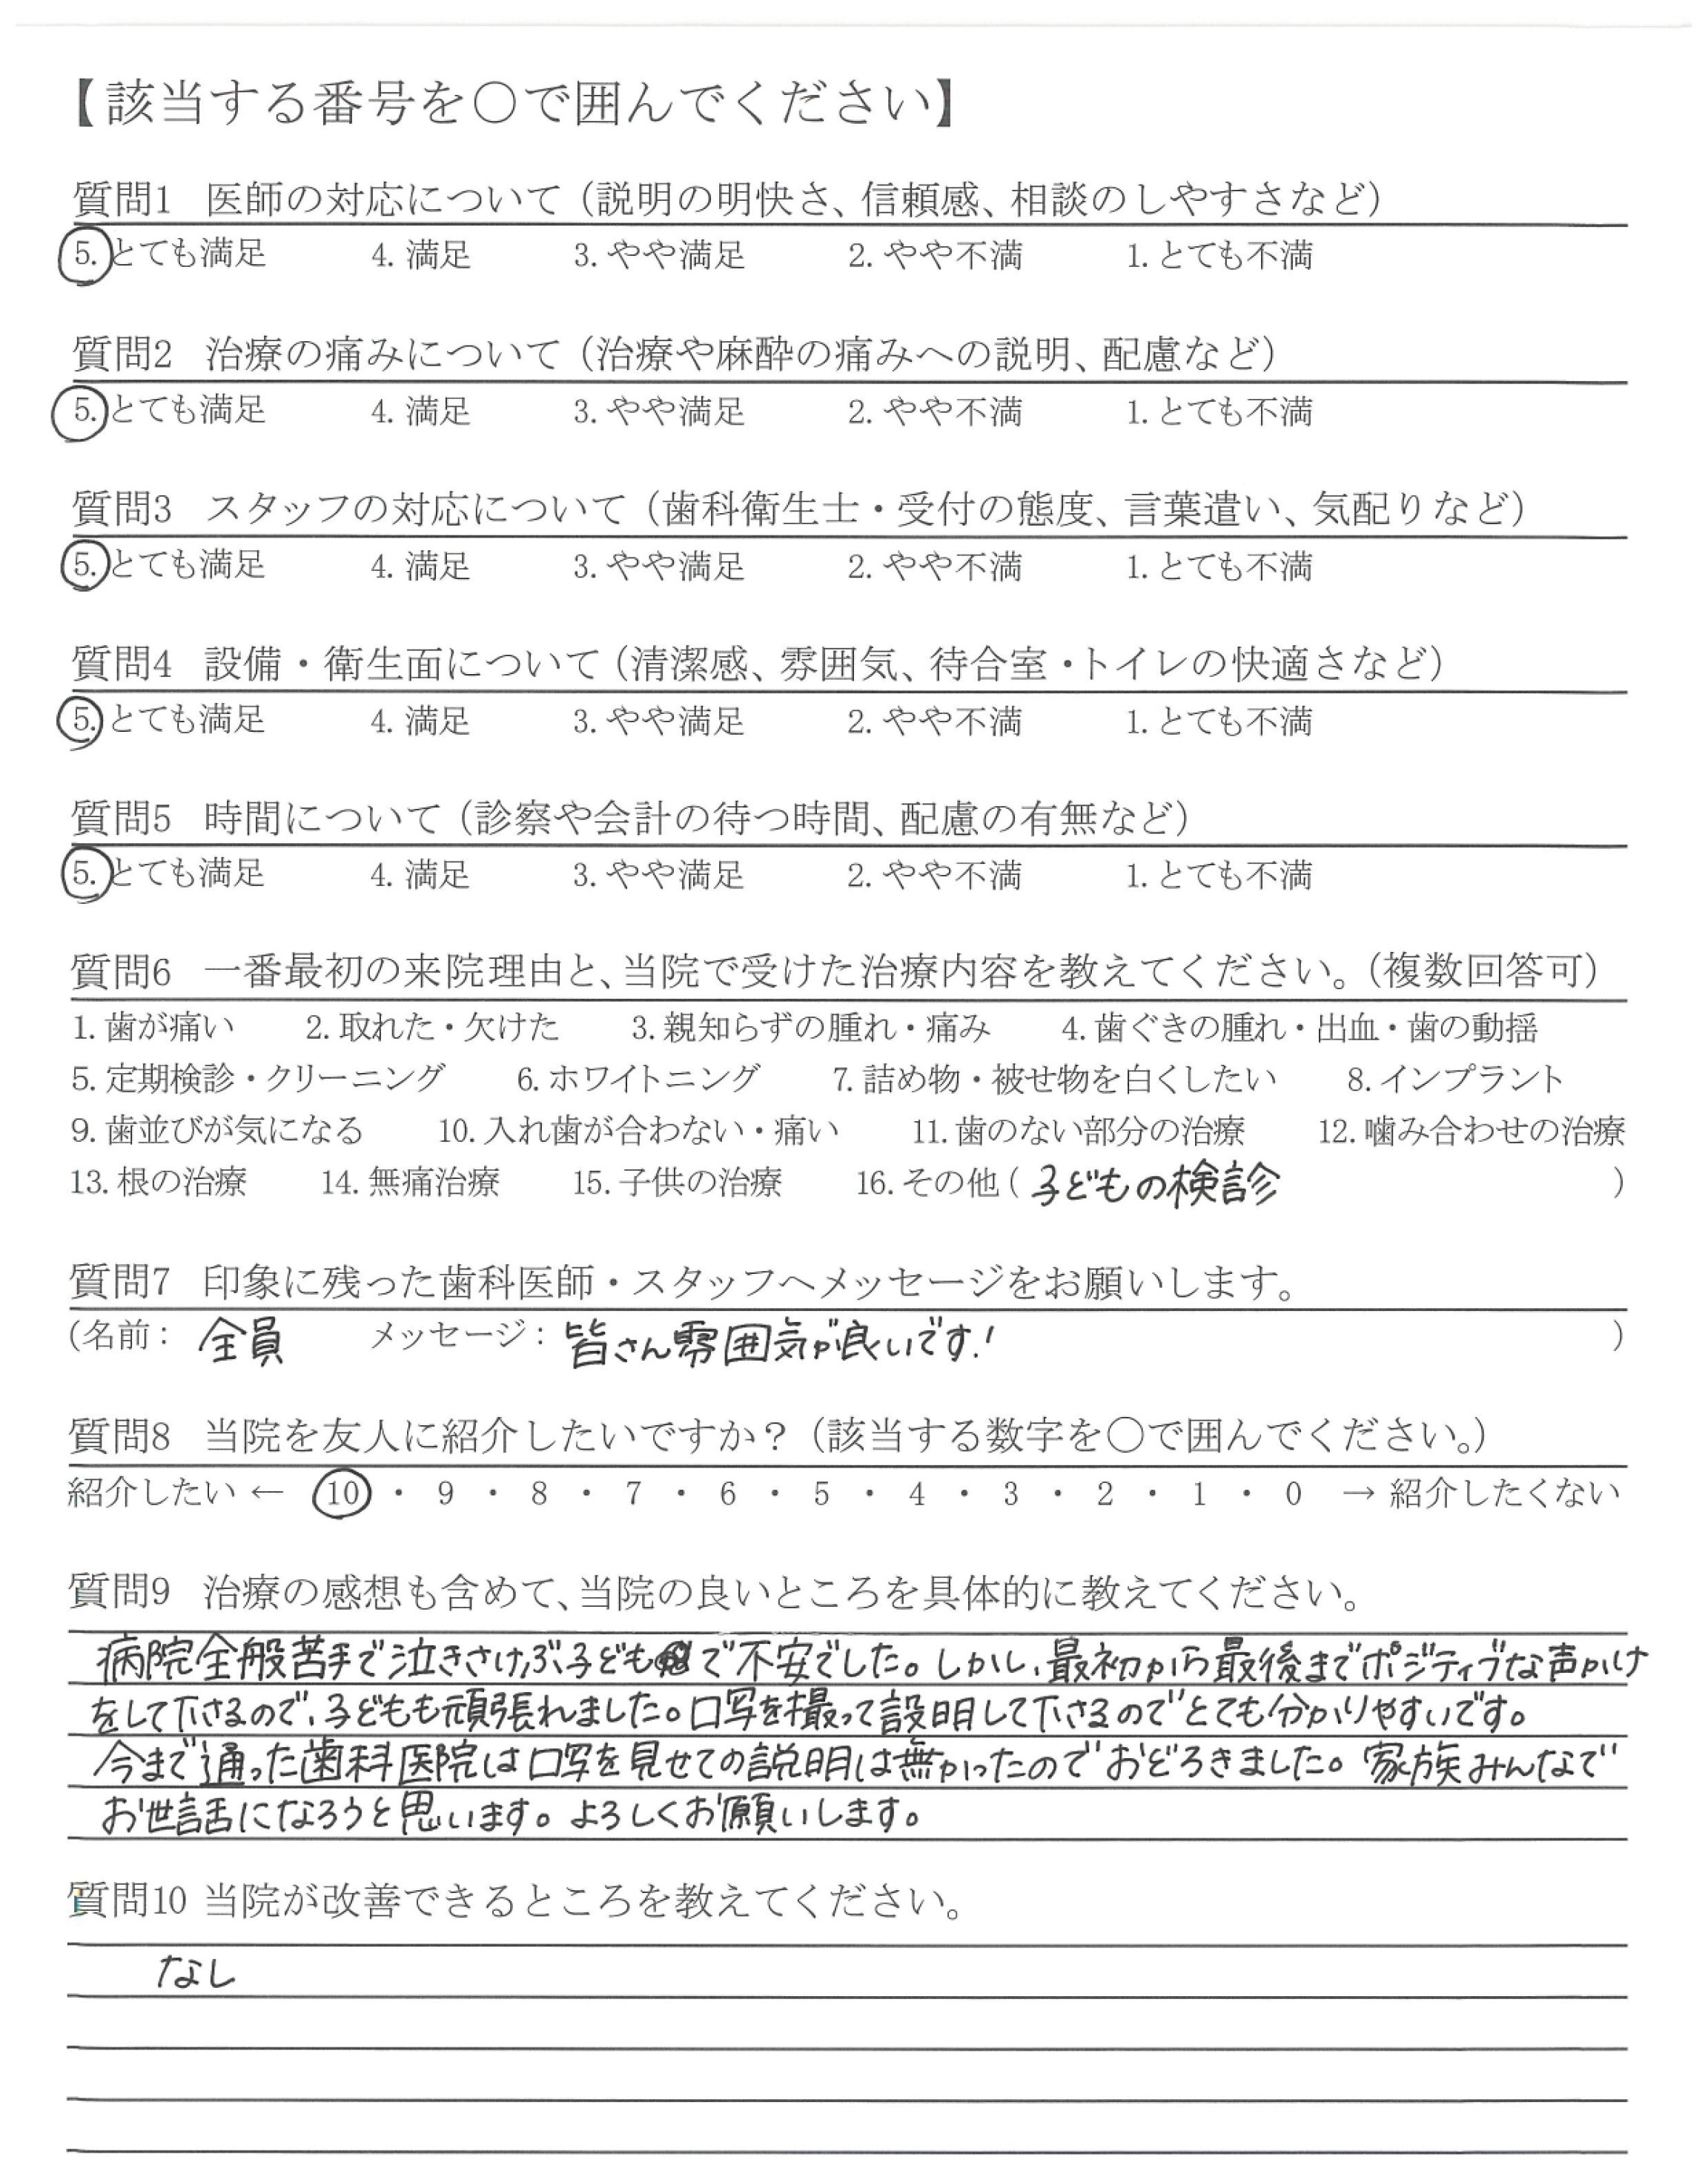 【該当する番号を〇で囲んでください】
質問1 医師の対応について（説明の明快さ、信頼感、相談のしやすさなど）
5. とても満足 4. 満足 3. やや満足 2. やや不満 1. とても不満
質問2 治療の痛みについて（治療や麻酔の痛みへの説明、配慮など）
5. とても満足 4. 満足 3. やや満足 2. やや不満 1. とても不満
質問3 スタッフの対応について（歯科衛生士・受付の態度、言葉遣い、気配りなど）
5. とても満足 4. 満足 3. やや満足 2. やや不満 1. とても不満
質問4 設備・衛生面について（清潔感、雰囲気、待合室・トイレの快適さなど）
5. とても満足 4. 満足 3. やや満足 2. やや不満 1. とても不満
質問5 時間について（診察や会計の待つ時間、配慮の有無など）
5. とても満足 4. 満足 3. やや満足 2. やや不満 1. とても不満
質問6 一番最初の来院理由と、当院で受けた治療内容を教えてください。（複数回答可）
1. 歯が痛い 2. 取れた・欠けた 3. 親知らずの腫れ・痛み 4. 歯ぐきの腫れ・出血・歯の動揺
5. 定期検診・クリーニング 6. ホワイトニング 7. 詰め物・被せ物を白くしたい 8. インプラント
9. 歯並びが気になる 10. 入れ歯が合わない・痛い 11. 歯のない部分の治療 12. 噛み合わせの治療
13. 根の治療 14. 無痛治療 15. 子供の治療 16. その他（子どもの検診）
質問7 印象に残った歯科医師・スタッフへメッセージをお願いします。
（名前： 全員 メッセージ： 皆さん雰囲気が良いです！）
質問8 当院を友人に紹介したいですか？（該当する数字を〇で囲んでください。）
紹介したい ← 10 ・ 9 ・ 8 ・ 7 ・ 6 ・ 5 ・ 4 ・ 3 ・ 2 ・ 1 ・ 0 → 紹介したくない
質問9 治療の感想も含めて、当院の良いところを具体的に教えてください。
病院全般苦手で泣きさけぶ子どもで不安でした。しかし、最初から最後までポジティブな声かけ
をして下さるので、子どもも頑張れました。口写を撮って説明して下さるのでとても分かりやすいです。
今まで通った歯科医院は口写を見せての説明は無かったのでおどろきました。家族みんなで
お世話になろうと思います。よろしくお願いします。
質問10 当院が改善できるところを教えてください。
なし